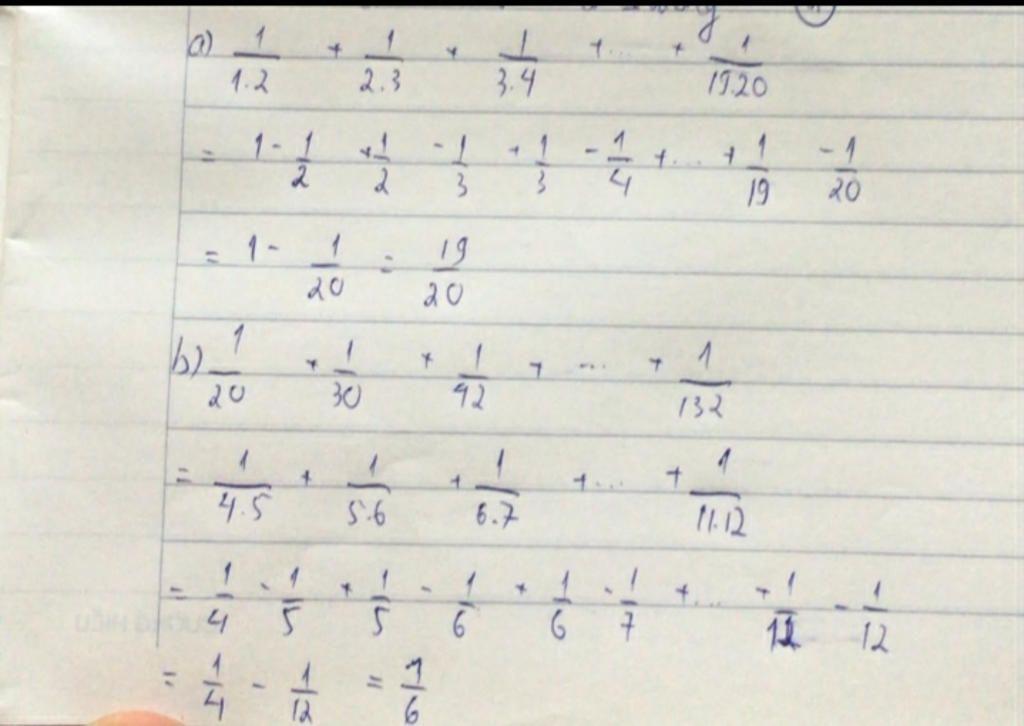 a) 1/1.2 + 1/2.3 + 1/3.4 + ... + 1/19.20
= 1 - 1/2 + 1/2 - 1/3 + 1/3 - 1/4 + ... + 1/19 - 1/20
= 1 - 1/20 = 19/20
b) 1/20 + 1/30 + 1/42 + ... + 1/132
= 1/4.5 + 1/5.6 + 1/6.7 + ... + 1/11.12
= 1/4 - 1/5 + 1/5 - 1/6 + 1/6 - 1/7 + ... + 1/11 - 1/12
= 1/4 - 1/12 = 1/6